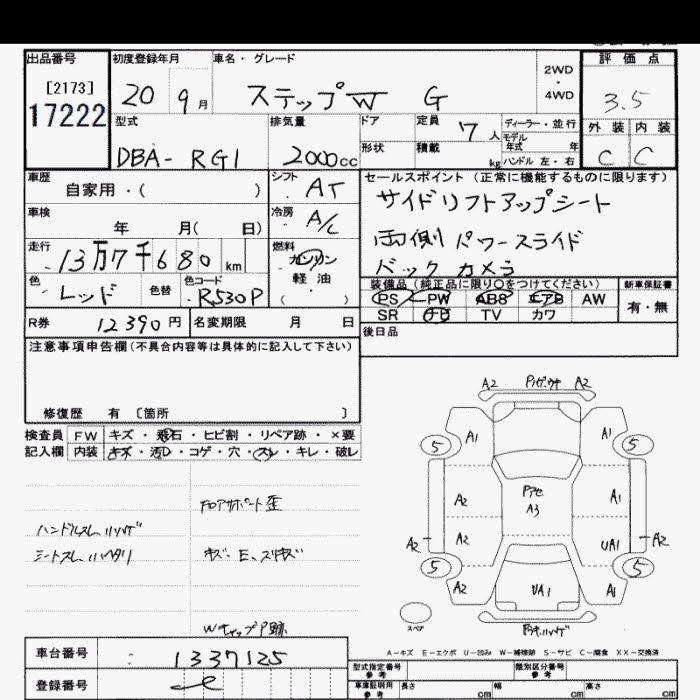 出品番号 初度登録年月 車名・グレード 2WD・4WD 評価点
[2173]
17222 20 9月 ステップW G 3.5
型式 排気量 ドア 定員 7人 ディーラー・並行 外装 内装
モデル年式 年
DBA-RG1 2000cc 形状 積載 kg ハンドル 左・右 C C
車歴 シフト AT セールスポイント (正常に機能するものに限ります)
自家用・( ) サイドリフトアップシート
車検 年 月( 日) 冷房 A/C 両側パワースライド
走行 13万7千680 km 燃料 ガソリン バックカメラ
軽油
・( )
色 レッド 色替 色コード R530P 装備品 (純正品に限り○をつけてください) 新車保証書
PS PW ABS エアB AW 有・無
SR ナビ TV カワ
R券 12390円 名変期限 月 日 後日品
注意事項申告欄 (不具合内容等は具体的に記入して下さい)
修復歴 有 〔箇所 〕
検査員 FW キズ・飛石・ヒビ割・リペア跡・×要
記入欄 内装 キズ・汚レ・コゲ・穴・スレ・キレ・破レ
A2 A2
A1 A1
5 5
A2 A3 A1
A2 A2 UA1 A2
5 5
A2 UA1 A1
フロアサポート歪
ハンドルスレ、ハガレ
キズ・E、スリキズ
スペア
A-キズ E-エクボ U-凹み W-補修跡 S-サビ C-腐食 XX-交換済
車台番号 1337125
登録番号
型式指定番号 参考 類別区分番号 参考
車庫証明用 参考 長さ cm 幅 cm 高さ cm